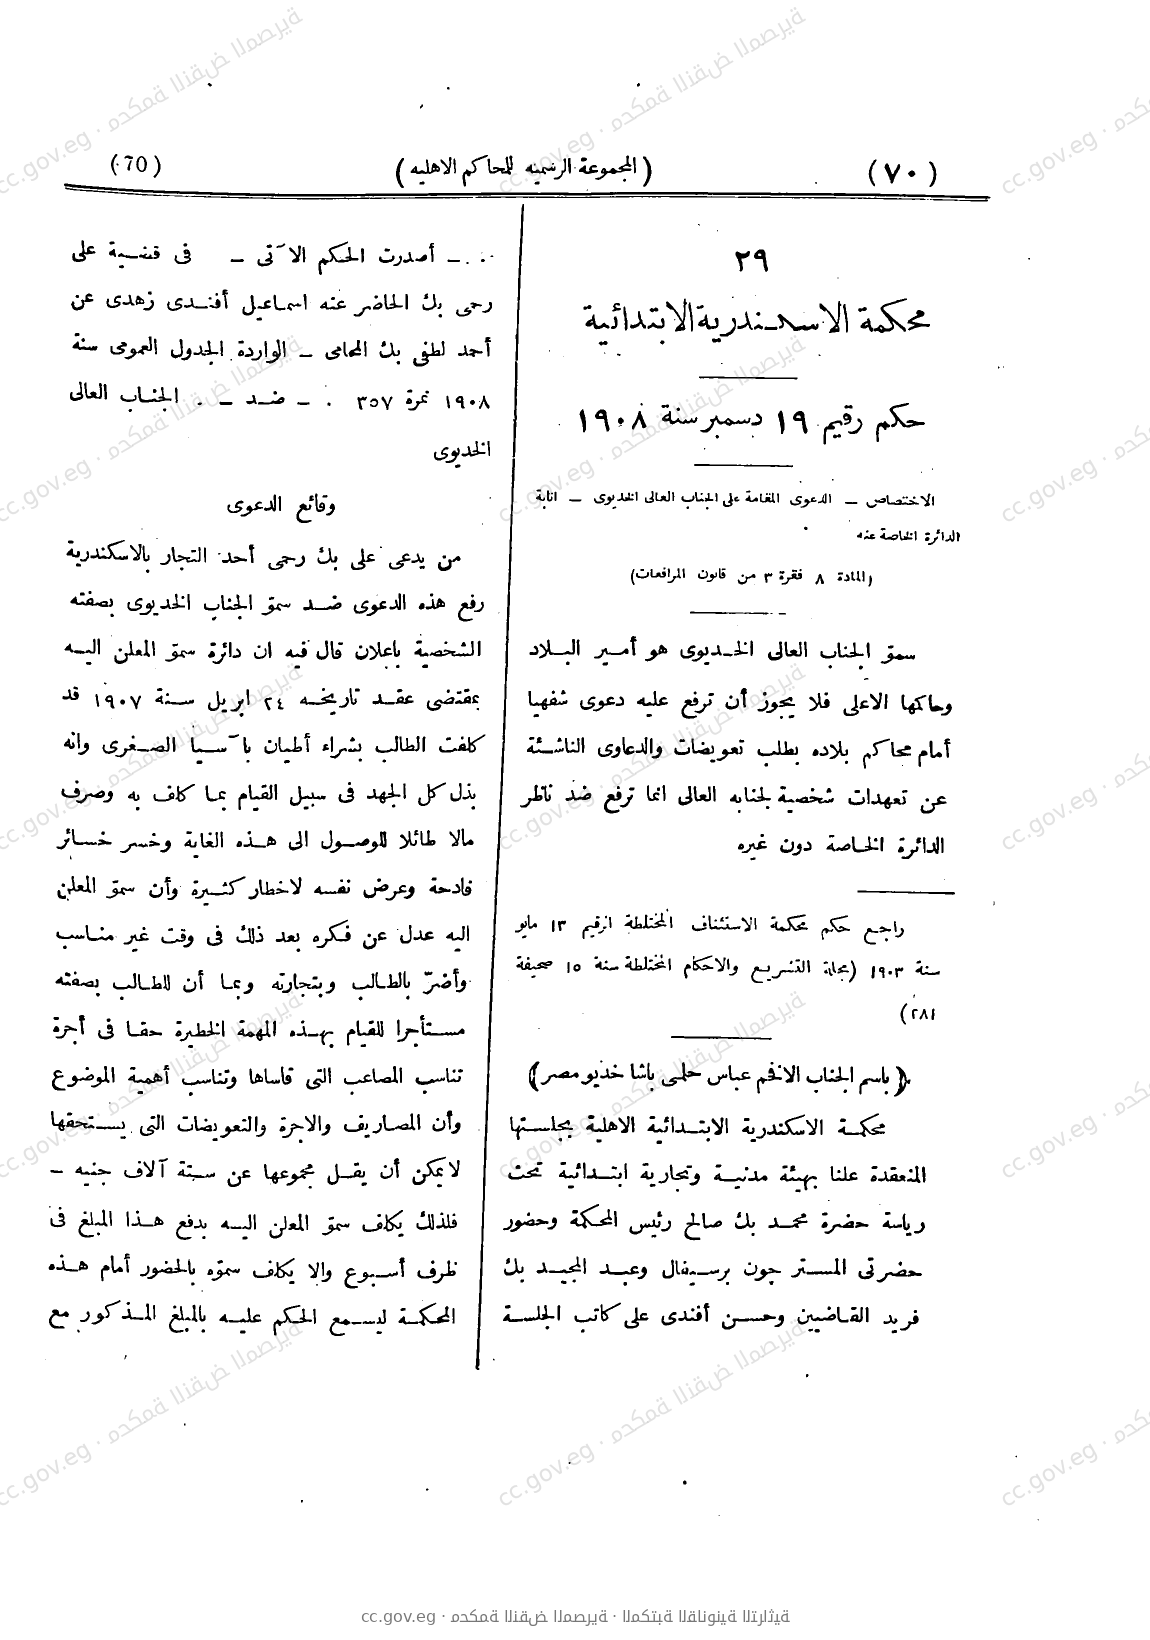 (٧٠)
(المجموعة الرسميه للمحاكم الاهليه)
(70)
٢٩
محكمة الاسكندرية الابتدائية
حكم رقيم ١٩ دسمبر سنة ١٩٠٨
الاختصاص – الدعوى المقامة على الجناب العالى الخديوى – انابة
الدائرة الخاصة عنه
(المادة ٨ فقرة ٣ من قانون المرافعات)
سمو الجناب العالى الخديوى هو أمير البلاد
وحاكمها الاعلى فلا يجوز أن ترفع عليه دعوى شفهيا
أمام محاكم بلاده بطلب تعويضات والدعاوى الناشئة
عن تعهدات شخصية لجنابه العالى انما ترفع ضد ناظر
الدائرة الخاصة دون غيره
راجع حكم محكمة الاستئناف المختلطة الرقيم ١٣ مايو
سنة ١٩٠٣ (مجلة التشريع والاحكام المختلطة سنة ١٥ صحيفة
٢٨١)
(باسم الجناب الافخم عباس حلمى باشا خديو مصر)
محكمة الاسكندرية الابتدائية الاهلية بجلستها
المنعقدة علنا بهيئة مدنية وتجارية ابتدائية تحت
رياسة حضرة محمد بك صالح رئيس المحكمة وحضور
حضرتى المستر چون برسيفال وعبد المجيد بك
فريد القاضيين وحسن أفندى على كاتب الجلسة
– أصدرت الحكم الآتى – فى قضية على
رحمى بك الحاضر عنه اسماعيل أفندى زهدى عن
أحمد لطفى بك المحامى – الواردة الجدول العمومى سنة
١٩٠٨ نمرة ٣٥٧ – ضد – الجناب العالى
الخديوى
وقائع الدعوى
من يدعى على بك رحمى أحد التجار بالاسكندرية
رفع هذه الدعوى ضد سمو الجناب الخديوى بصفته
الشخصية باعلان قال فيه ان دائرة سمو المعلن اليه
بمقتضى عقد تاريخه ٢٤ ابريل سنة ١٩٠٧ قد
كلفت الطالب بشراء أطيان بآسيا الصغرى وانه
بذل كل الجهد فى سبيل القيام بما كلف به وصرف
مالا طائلا للوصول الى هذه الغاية وخسر خسائر
فادحة وعرض نفسه لاخطار كثيرة وأن سمو المعلن
اليه عدل عن فكره بعد ذلك فى وقت غير مناسب
وأضرّ بالطالب وبتجارته وبما أن للطالب بصفته
مستأجرا للقيام بهذه المهمة الخطيرة حقا فى أجرة
تناسب المصاعب التى قاساها وتناسب أهمية الموضوع
وأن المصاريف والاجرة والتعويضات التى يستحقها
لا يمكن أن يقل مجموعها عن ستة آلاف جنيه –
فلذلك يكلف سمو المعلن اليه بدفع هذا المبلغ فى
ظرف أسبوع والا يكلف سموّه بالحضور أمام هذه
المحكمة ليسمع الحكم عليه بالمبلغ المذكور مع
cc.gov.eg · محكمة النقض المصرية · المكتبة القانونية التراثية